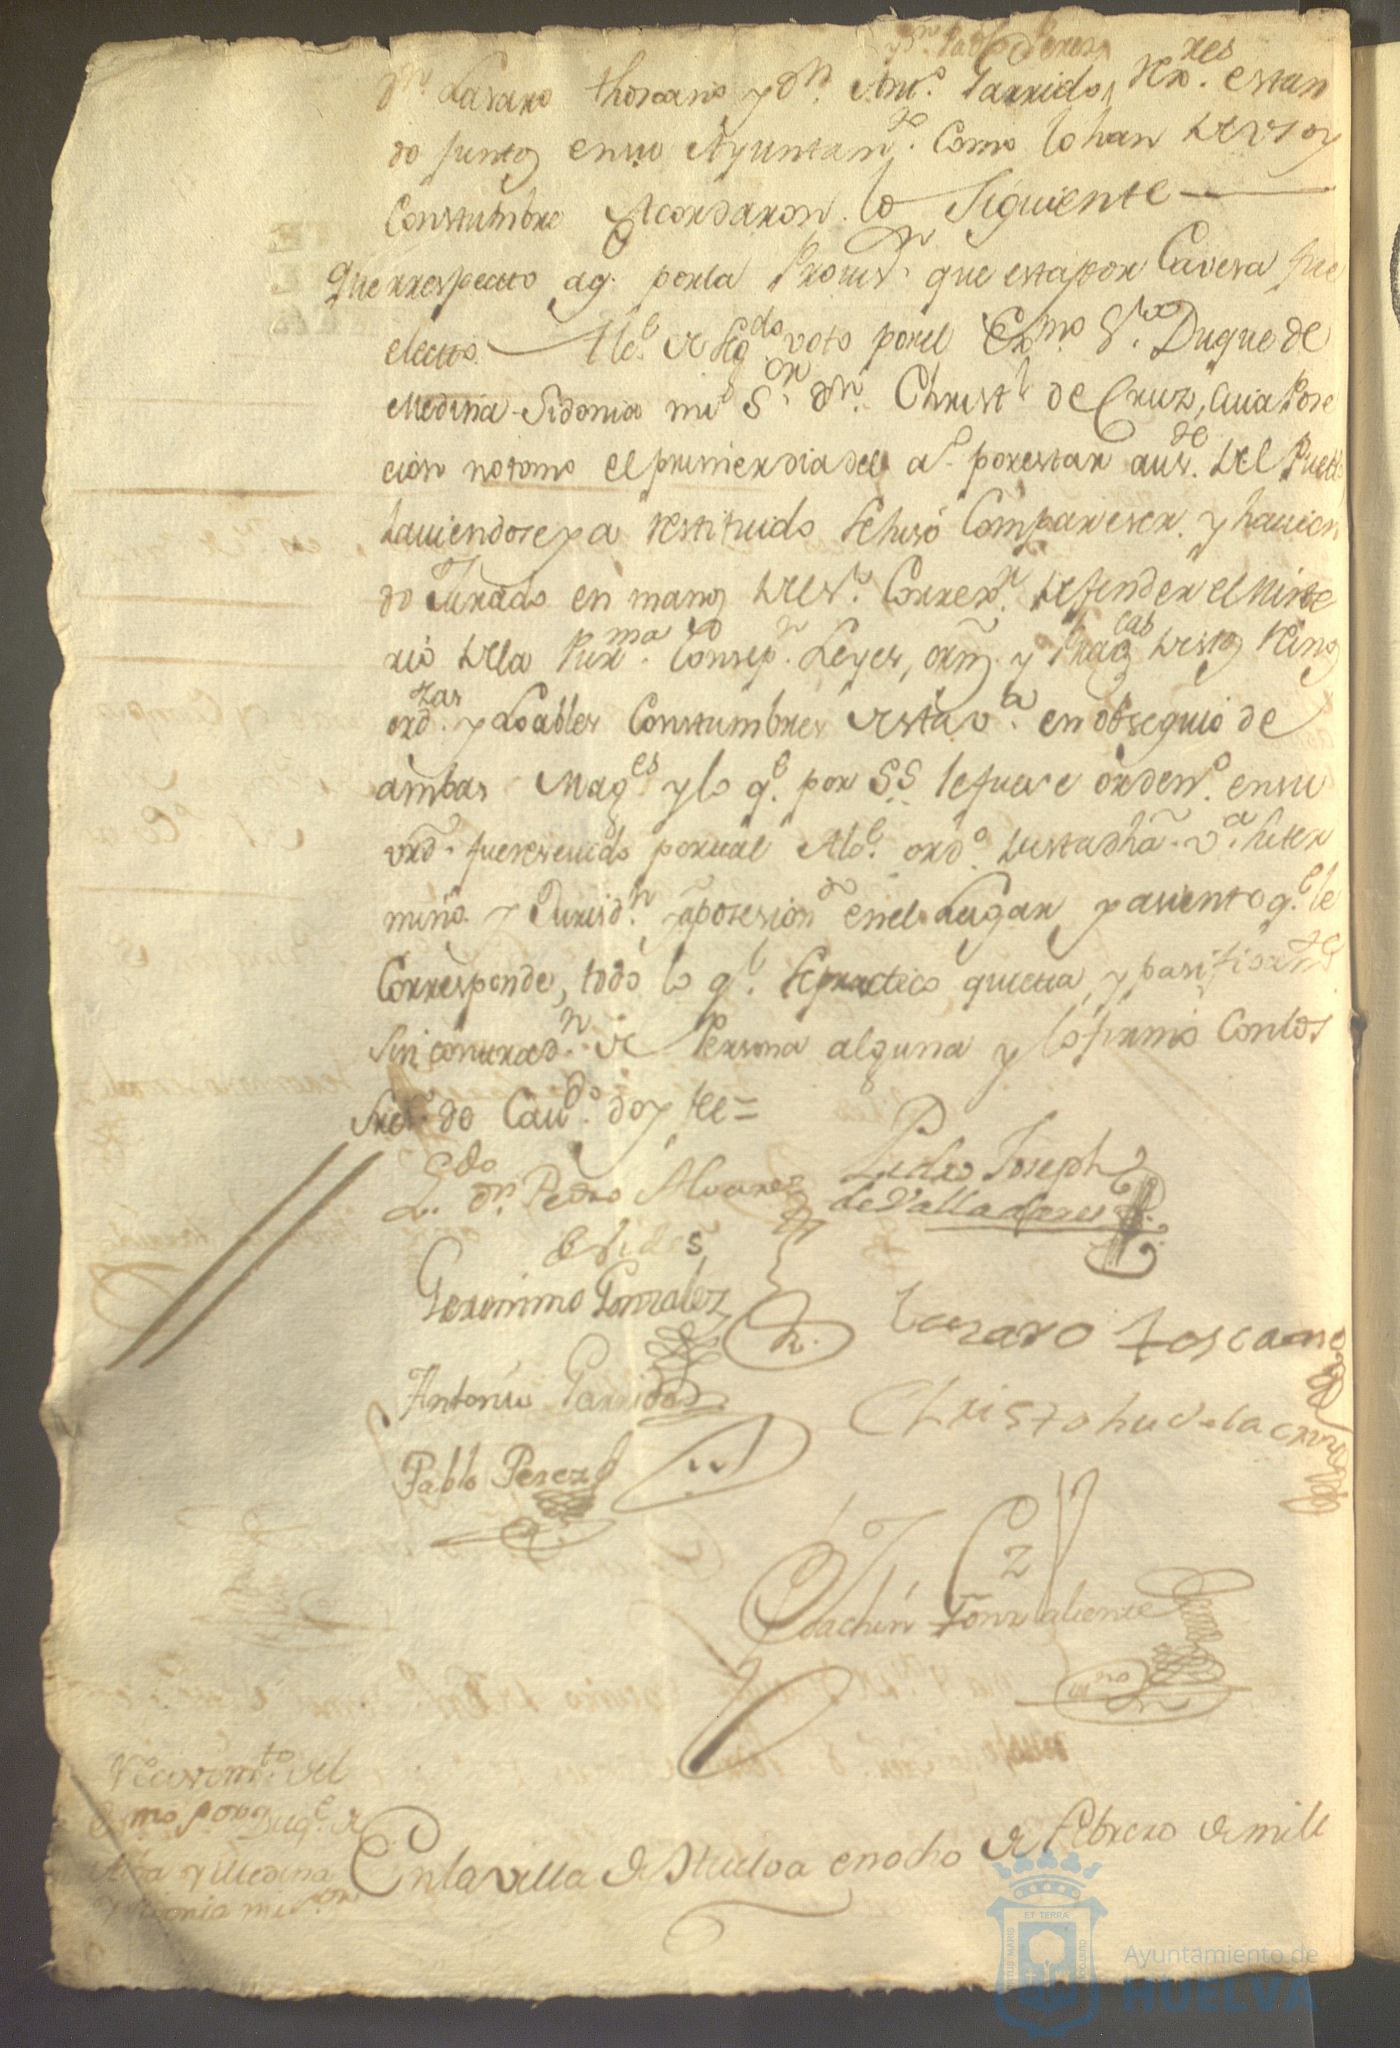 y dn. Pablo Perez
dn. Lasaro thoscano y dn. Anto. Garrido, rexres. estan
do juntos en su Ayuntamto. como lo han de uso y
Constumbre Acordaron lo Siguiente
Que rrespecto a q. por la Provisn. que esta por Cavesa fue
electo Alce. de segdo voto por el Exmo Sor. Duque de
Medina Sidonia mi Sor. dn. Christl. de Cruz, cuia Pose
cion no tomo el primer dia del aº. por estar aute. del Puebº
haviendose ya restituido se hisó Comparecer. y havien
do Jurado en manos del sr. Correxr. defender el Miste
rio de la Purma. Consepn. Leyes, ors. y Pragcas destos Reinos
ordzas. y Loables Constumbres de sta va. en obsequio de
ambas Mages y lo qe. por S.S. le fuere ordeno. en su
vrd. fue resevido por tal Alce. ordo. de sta dha. va. su ter
mino y Jurisdn. y aposesiondo en el Lugar y asiento qe. le
Corresponde, todo lo qe. se practico quieta y pasificamte
Sin contradn. de Persona alguna y lo firmó con los
Sres. de Cavdo. doy fee=
Ldo. dn. Pedro Alvarez
Pedro Joseph
de Valladares
Geronimo Gonzalez
Lazaro toscano
Antonio Garrido
Christohu de la cruz
Pablo Perez
Joachin Gonz
mo por
Alva y Medina
Sidonia mi sor
En la villa de Huelva en ocho de febrero de mill
ET TERRÆ
PORTUS MARIS
CUSTODIA
Ayuntamiento de
HUELVA